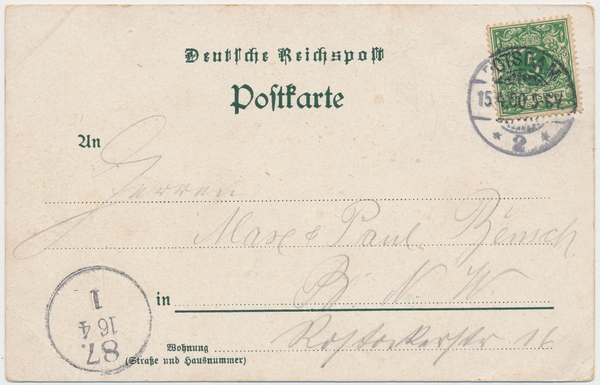 Deutsche Reichspost
Postkarte
POTSDAM
15.4.00 5-6V.
* 2 *
An
Herren
Max & Paul
B. N. W.
in
Rostockerstr
Wohnung
(Straße und Hausnummer)
87.
16 4
1